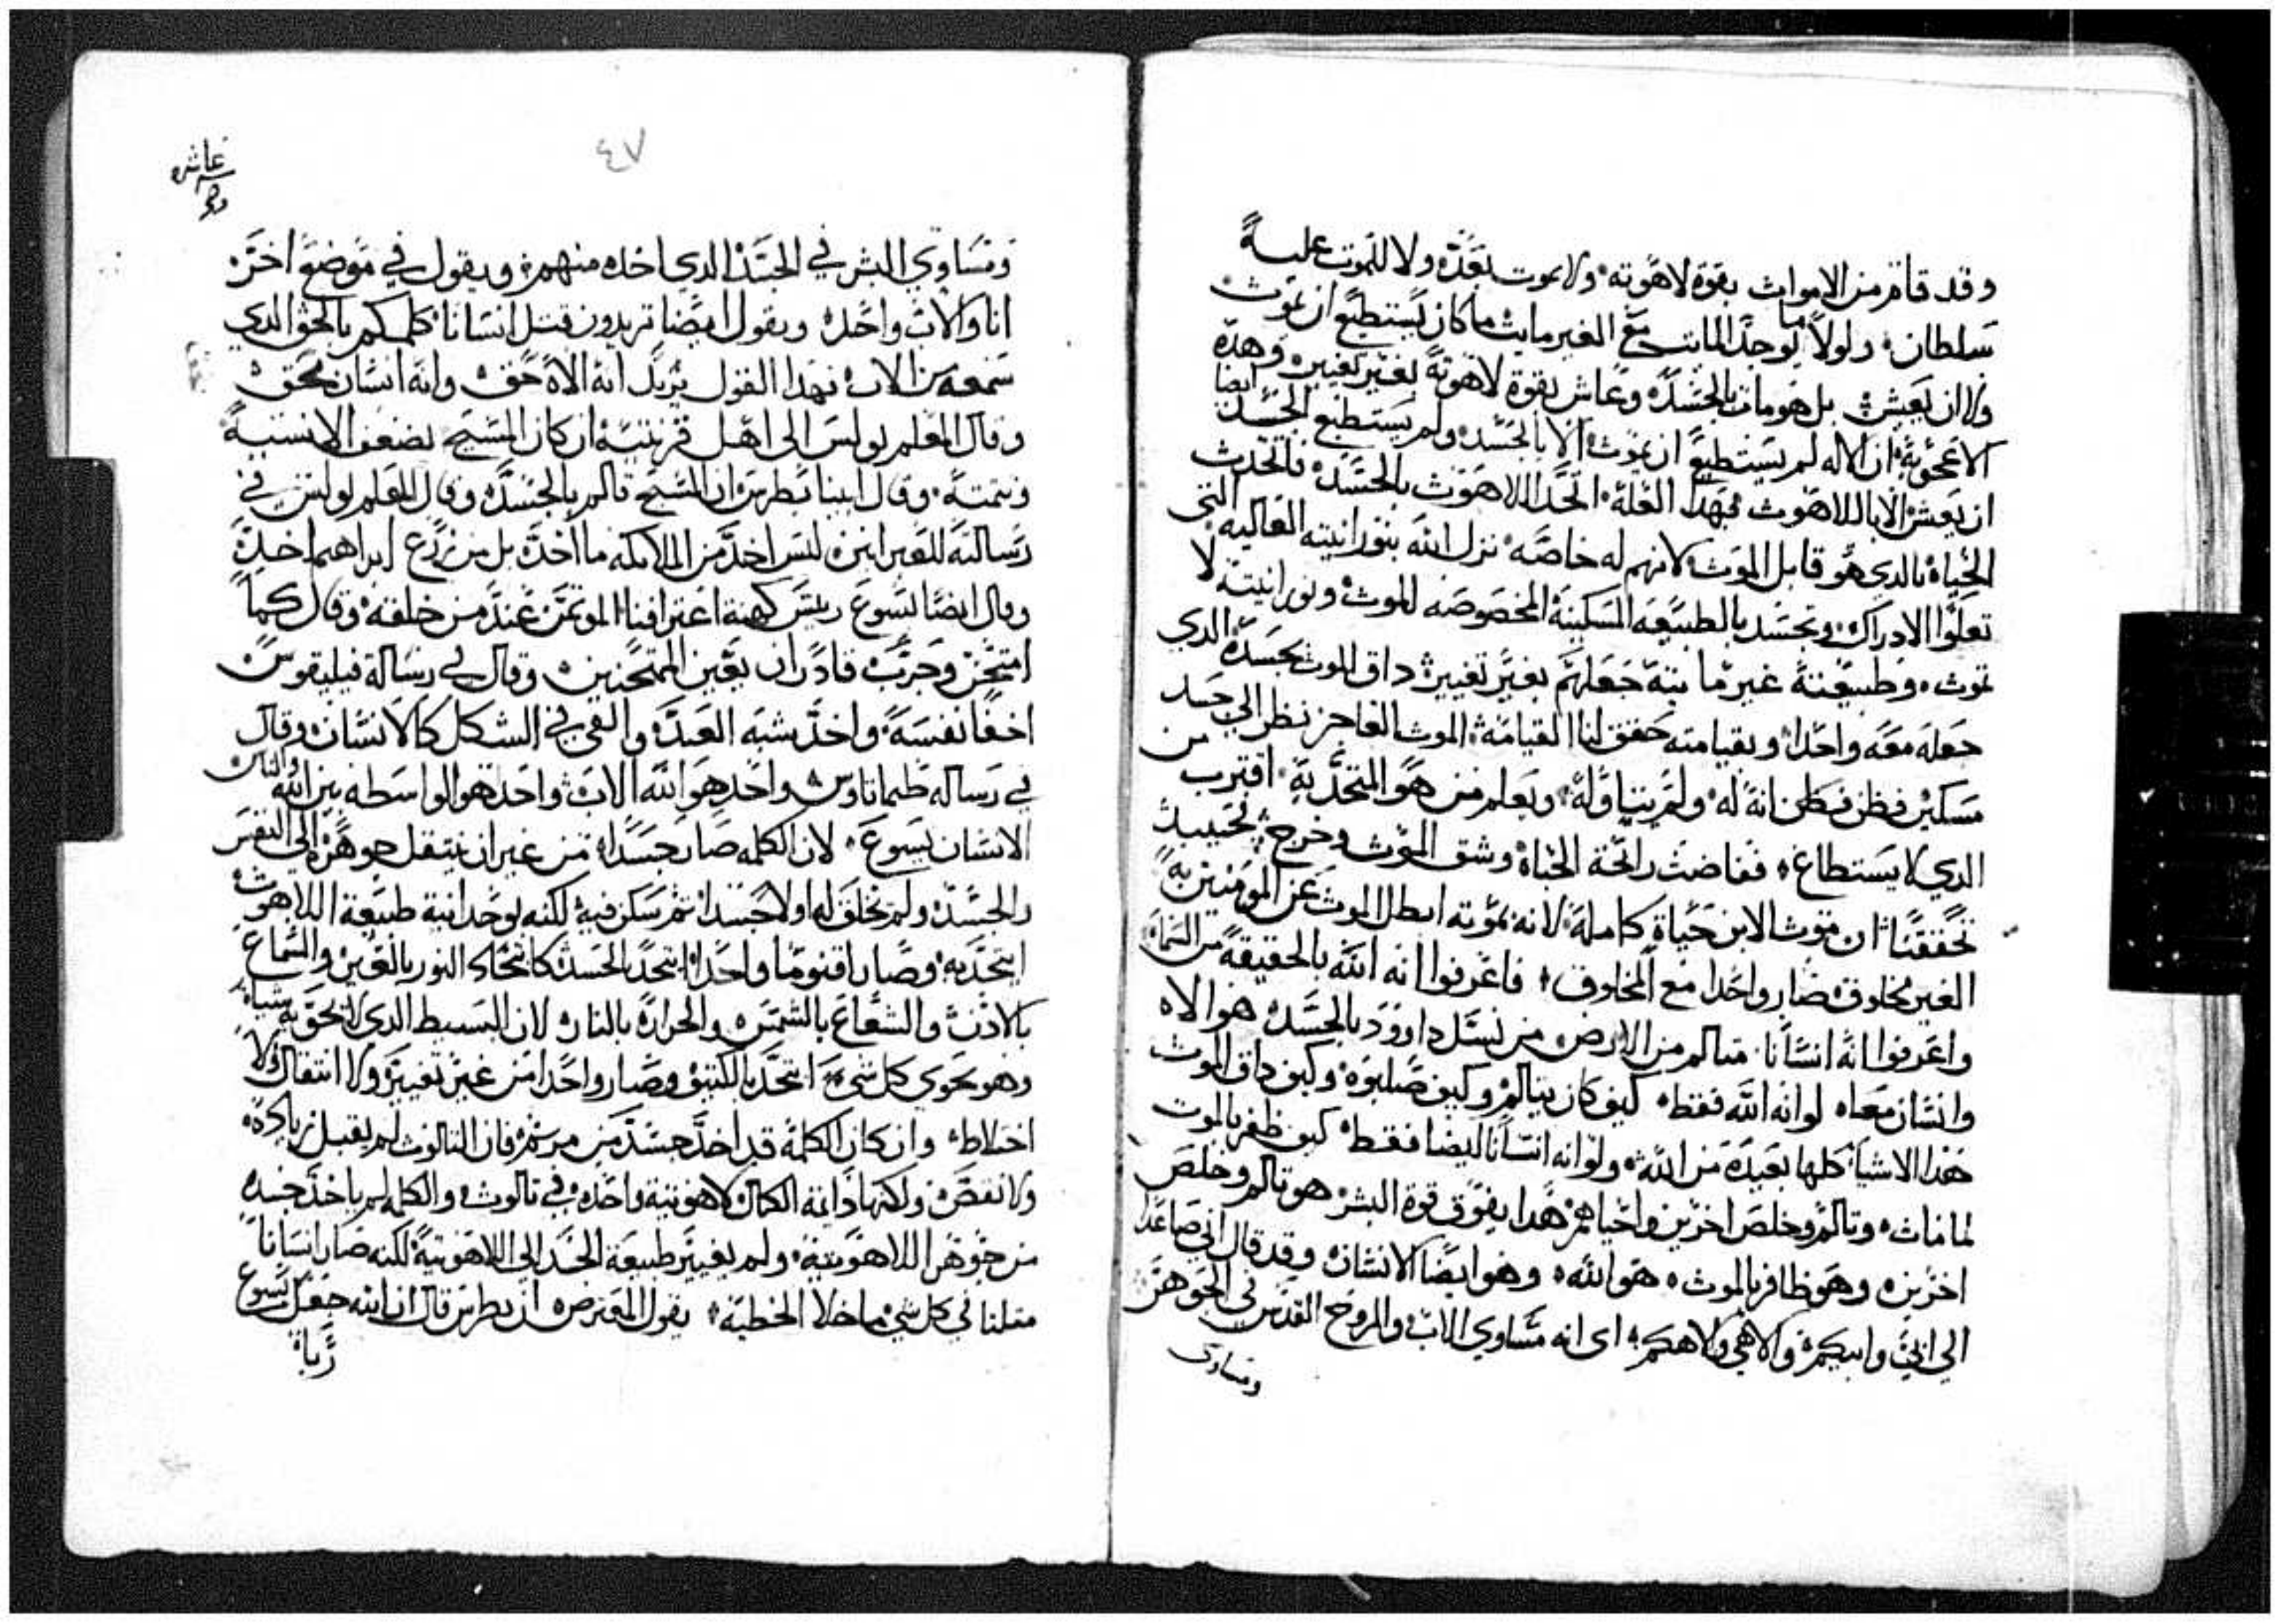 وقد قام من الاموات بقوة لاهوته ولا يموت بعده ولا للموت عليه
سلطان ولولا ما يوجد المايت مع الغير مايت ما كان يستطيع ان يموت
ولا ان يعيش بل هو مات بالجسد وعاش بقوة لاهوته بغير تغيير وهده
الاعجوبة ان الاله لم يستطيع ان يموث الا بالجسد ولم يستطيع الجسد ايضا
ان يعيش الا باللاهوت فبهدا العلة اتحد اللاهوث بالجسد فاتحدث
الحياة بالدي هو قابل الموت لانهم له خاصه نزل الله بنورانيته العاليه التي
تعلوا الادراك وتجسد بالطبيعه المسكينة المخصوصه للموث ونورانيته لا
تموث وطبيعته غير مايته جعلهم بغير تغيير داق الموث بجسده الدي
جعله معه واحدا وبقيامته حقق لنا القيامة الموث الفاجر نظر الى جسد
مسكين فظن انه له ولم يتناوله ويعلم من هو المتحد به اقترب من
الدي لا يستطاع ففاضت رائحة الحياة وشق الموث وخرج بحينيد
تحققنا ان موث الابن حياة كاملة لانه بموته ابطل الموث عن المومنين به
الغير مخلوق صار واحدا مع المخلوق فاعرفوا انه الله بالحقيقة من السماء
واعرفوا انه انسانا متالم من الارض من نسل داوود بالجسد هو الاه
وانسان معاه لو انه الله فقط كيف كان يتالم وكيف صلبوه وكيف داق الموت
هدا الاشيا كلها بعيدة من الله ولو انه انسانا ايضا فقط كيف ظفر بالموت
لما ماث وتالم وخلص اخرين واحياهم هدا يفوق قوة البشر هو تالم وخلص
اخرين وهو ظافر بالموث هو الله وهو ايضا الانسان وقد قال اني صاعدا
الى ابي وابيكم والاهي والاهكم اى انه مساوي الاب والروح القدس في الجوهر
ومساوى
٤٧
عاشر
ومساوي البشر في الجسد الدي اخده منهم ويقول في موضع اخر
انا والاب واحد ويقول ايضا تريدون قتل انسانا كلمكم بالحق الدي
سمعه من الاب فهدا القول يريد انه الاه حق وانه انسان بحق
وقال المعلم بولس الى اهل قرنتية ان كان المسيح بضعف الانسية
وقال ابينا بطرس ان المسيح تالم بالجسد وقال المعلم بولس في
رسالته للعبرانين ليس اخد من الملايكه ما اخده بل من زرع ابراهيم اخد
وقال ايضا يسوع رييس كهنة اعترافنا الموتمن عند من خلقه وقال كما
امتحن وجرب قادر ان يعين الممتحنين وقال في رسالة فيليقوس
اخفا نفسه واخد شبه العبد والفي في الشكل كالانسان وقال
في رساله طيماتاوس واحد هو الله الاب واحد هو الواسطه بين الله والناس
الانسان يسوع لان الكلمه صار جسدا من غير ان ينتقل جوهره الى النفس
والجسد ولم تخلق له اولا جسدا ثم سكن فيه لكنه بوحدانية طبيعة اللاهوث
اتحد به وصار اقنوما واحدا اتحد بالجسد كاتحاد النور بالعين والسماع
بالادن والشعاع بالشمس والحرارة بالنار لان البسيط الدي لا
وهو يحوي كل شيء اتحد بالكتيف وصار واحدا من غير تغيير ولا انتقال ولا
اختلاط وان كان الكلمة قد اخد جسد من مريم فان التالوث لم يقبل زيادة
ولا نقص ولكنها دايمة الكمال لاهوتية واحده في تالوث والكلمه لم ياخد جسده
من جوهر اللاهوتية ولم يغيير طبيعة الجسد الى اللاهوتية لكنه صار انسانا
متلنا في كل شي ما خلا الخطية يقول المعترض ان بطرس قال ان الله جعل يسوع
ربا